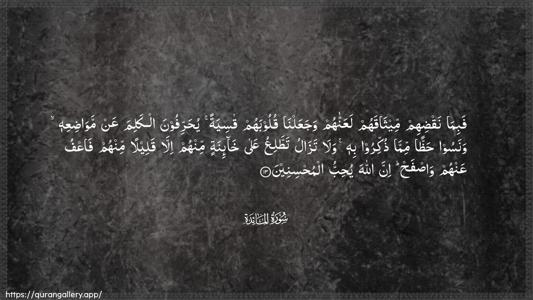 فَبِمَا نَقۡضِهِمۡ مِّيۡثَاقَهُمۡ لَعَنّٰهُمۡ وَجَعَلۡنَا قُلُوۡبَهُمۡ قٰسِيَةً‌ ۚ يُحَرِّفُوۡنَ الۡـكَلِمَ عَنۡ مَّوَاضِعِهٖ‌ ۙ
وَنَسُوۡا حَظًّا مِّمَّا ذُكِّرُوۡا بِهٖ‌ۚ وَلَا تَزَالُ تَطَّلِعُ عَلٰى خَآٮِٕنَةٍ مِّنۡهُمۡ اِلَّا قَلِيۡلًا مِّنۡهُمۡ‌ فَاعۡفُ
عَنۡهُمۡ وَاصۡفَحۡ‌ ؕ اِنَّ اللّٰهَ يُحِبُّ الۡمُحۡسِنِيۡنَ ١٣
سُوْرَةُ المَائِدَة
https://qurangallery.app/